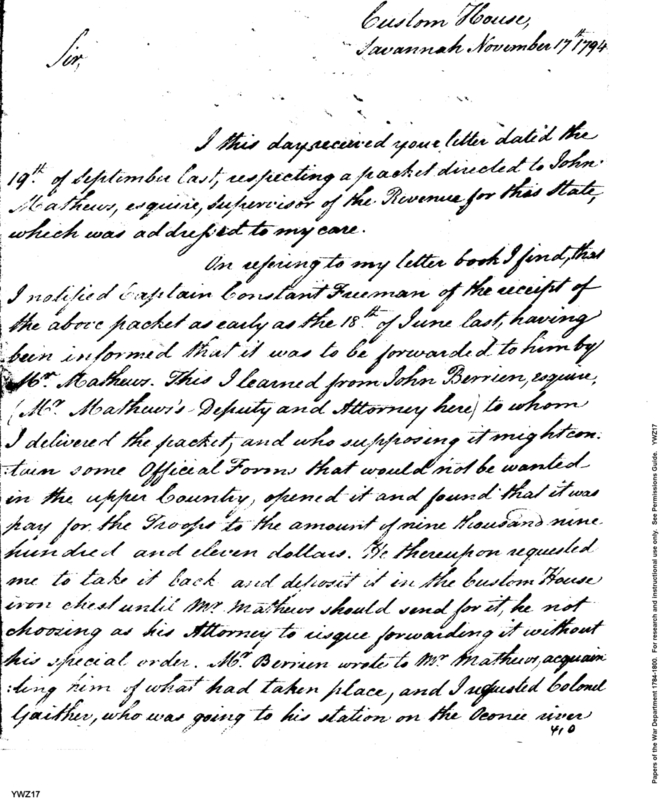 Custom House,
Savannah November 17th 1794
Sir,
I this day received your letter dated the
19th of September last, respecting a packet directed to John
Mathews, esquire, Supervisor of the Revenue for this State,
which was addressed to my care.
On refiring to my letter book I find, that
I notified Captain Constant Freeman of the receipt of
the above packet as early as the 18th of June last, having
been informed that it was to be forwarded to him by
Mr. Mathews. This I learned from John Berrien, esquire,
(Mr. Mathews's Deputy and Attorney here) to whom
I delivered the packet, and who supposing it might con:
:tain some Official Forms that would not be wanted
in the upper Country, opened it and found that it was
pay for the Troops to the amount of nine thousand nine
hundred and eleven dollars. He thereupon requested
me to take it back and deposit it in the Custom House
iron chest until Mr. Mathews should send for it, he not
choosing as his Attorney to risque forwarding it without
his special order. Mr. Berrien wrote to Mr. Mathews, acquain
:ting him of what had taken place, and I requested Colonel
Gaither, who was going to his station on the Oconee river
410
YWZ17
Papers of the War Department 1784-1800. For research and instructional use only. See Permissions Guide. YWZ17